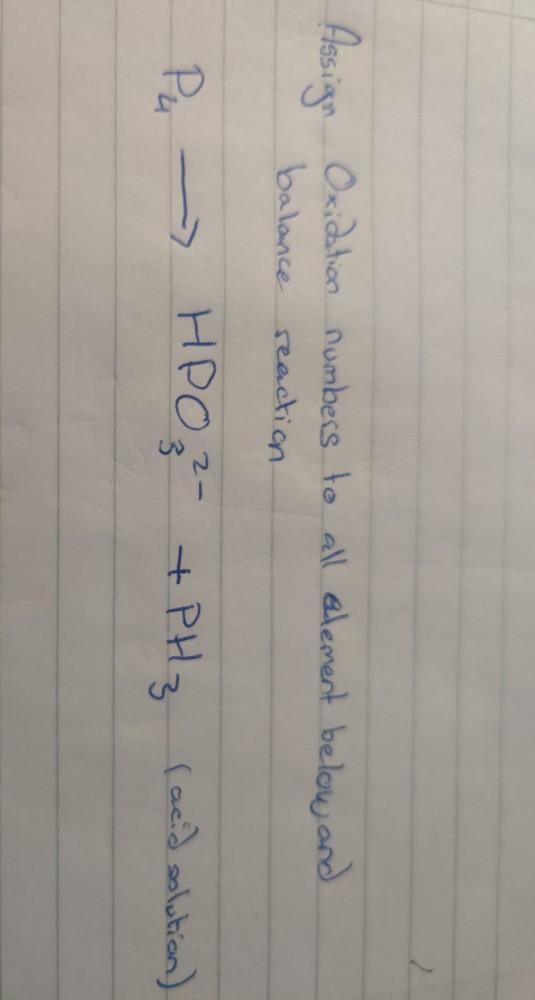 Assign Oxidation numbers to all element below and
balance reaction
P₄ → HPO₃²⁻ + PH₃ (acid solution)